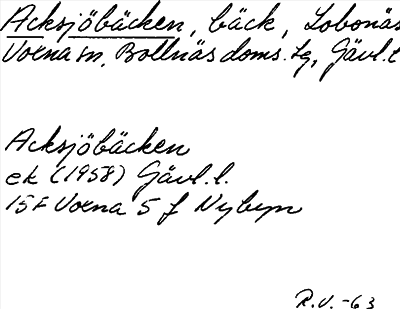 Acksjöbäcken, bäck, Lobonäs
Voxna sn, Bollnäs doms. tg, Gävl. l
Acksjöbäcken
ek (1958) Gävl. l.
15F Voxna 5 f Nybyn
R.V. -63